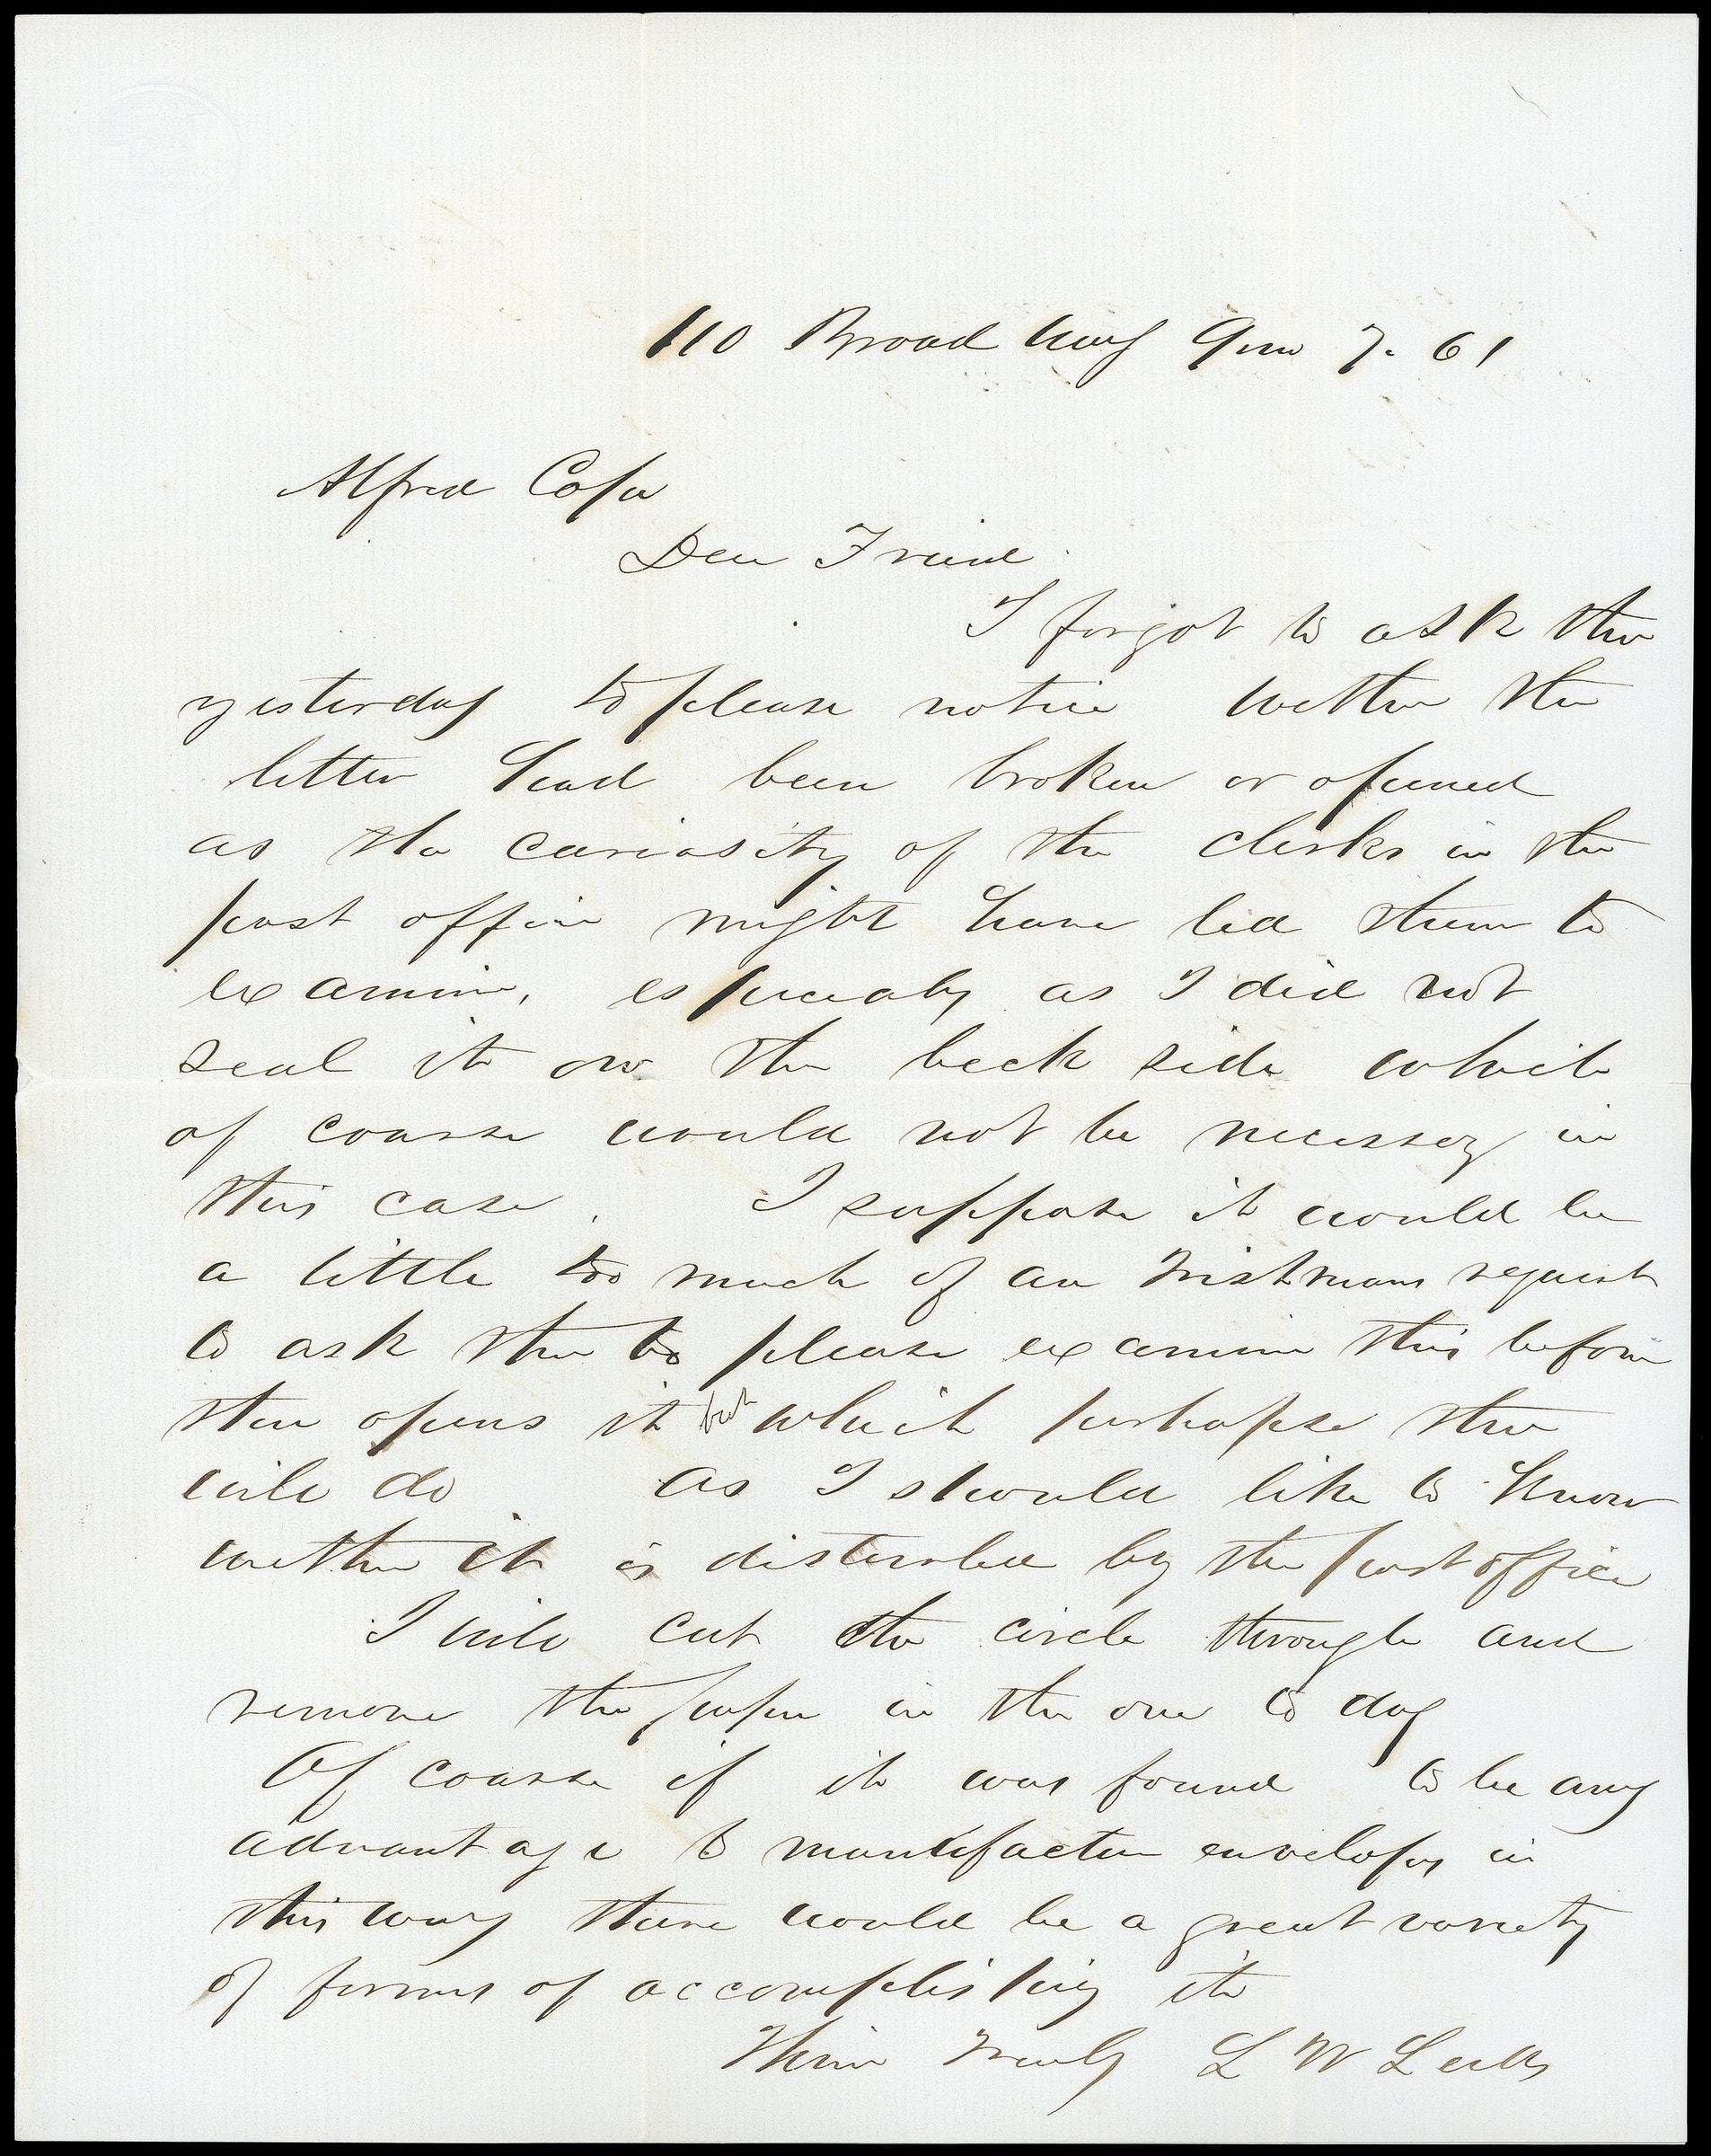 110 Broad Way 9mo 7. 61
Alfred Cope
Dear Friend
I forgot to ask thee
yesterday to please notice wether the
letter had been broken or opened
as the curiosity of the clerks in the
post office might have led them to
examine, especialy as I did not
seal it on the back side which
of course would not be necessay in
this case. I suppose it would be
a little too much of an Irishmans request
to ask thee to please examine this before
thee opens it but which perhapse thee
will do as I should like to know
wether it is disturbed by the post office
I will cut the circle through and
remove the paper in the one to day
Of course if it was found to be any
advantage to manufacture envelopes in
this way there would be a great variety
of forms of accomplishing it
Thine Truly L W Leeds